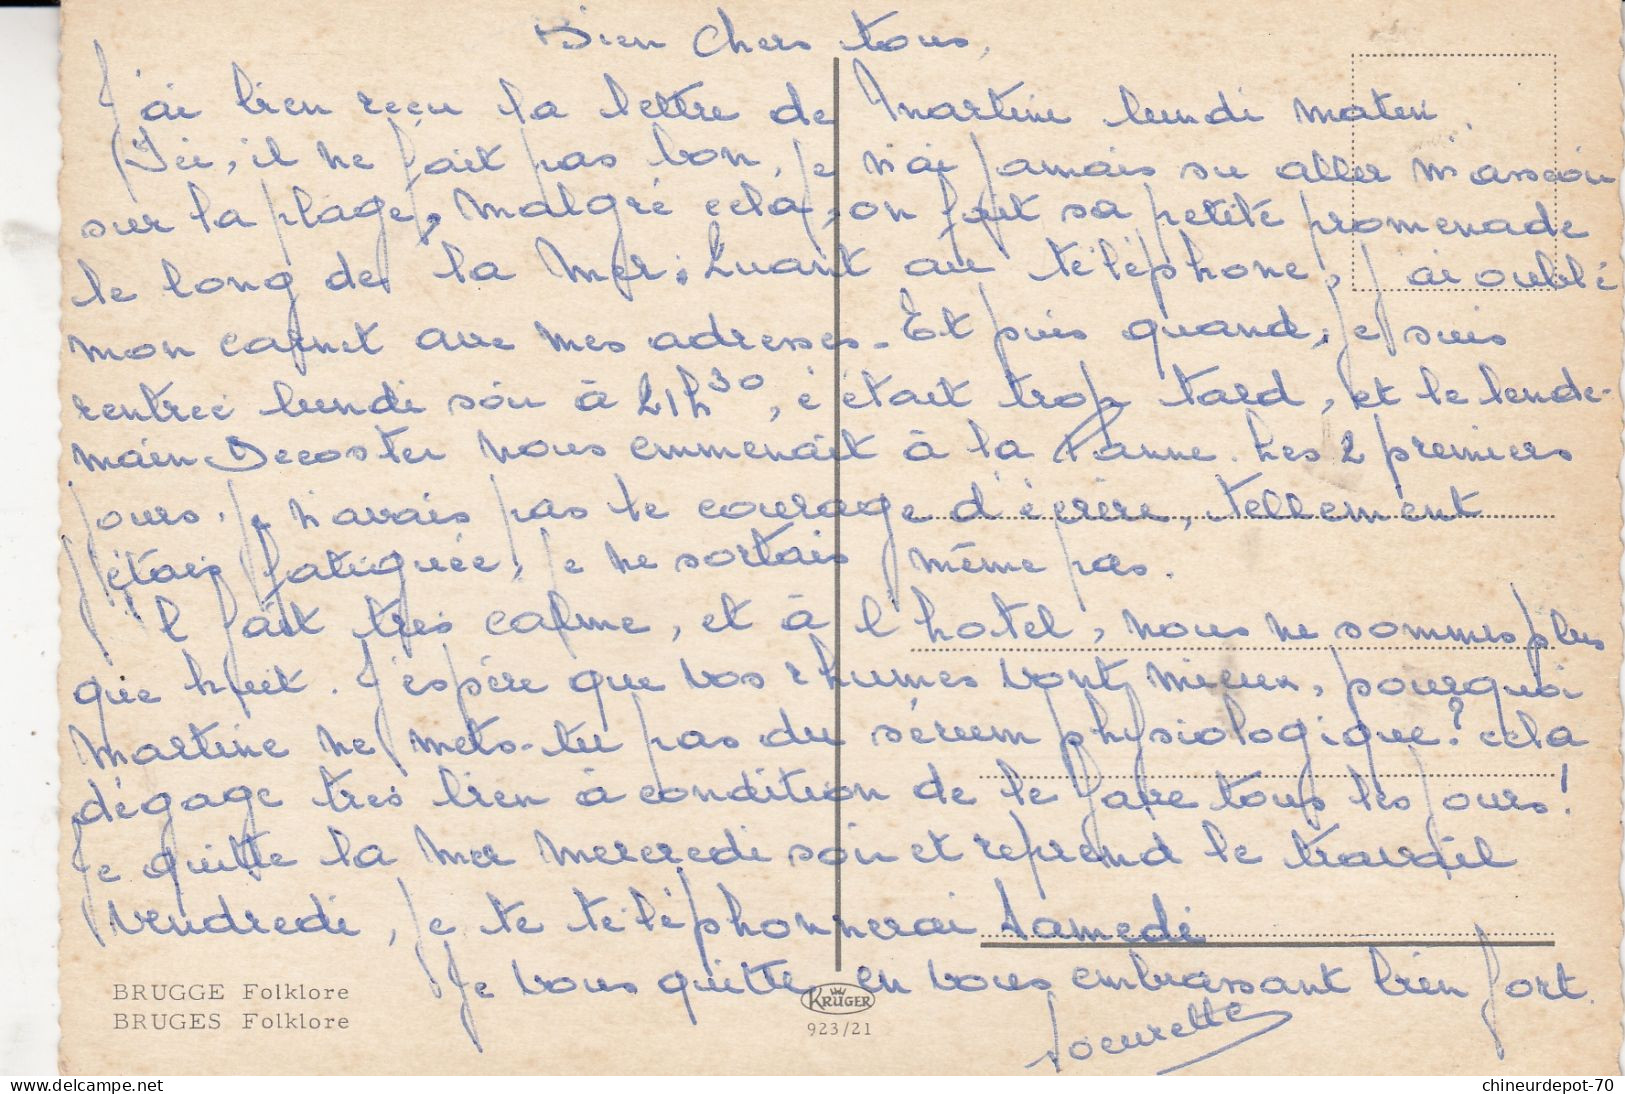 Bien chers tous,
J'ai bien reçu la lettre de Martine lundi matin.
Ici, il ne fait pas bon, je n'ai jamais su aller m'asseoir
sur la plage, malgré cela, on fait sa petite promenade
le long de la mer. Quant au téléphone, j'ai oublié
mon carnet avec mes adresses. Et puis quand, je suis
rentrée lundi soir à 21h30, c'était trop tard, et le lende-
main Decoster nous emmenait à la Panne. Les 2 premiers
jours, je n'avais pas le courage d'écrire, tellement
j'étais fatiguée, je ne sortais même pas.
Il fait très calme, et à l'hotel, nous ne sommes plus
que huit. J'espère que vos rhumes vont mieux, pourquoi
Martine ne mets-tu pas du sérum physiologique? cela
dégage très bien à condition de le faire tous les jours!
Je quitte la mer mercredi soir et reprend le travail
vendredi, je te téléphonnerai samedi
Je vous quitte en vous embrassant bien fort.
Soeurette
BRUGGE Folklore
BRUGES Folklore
KRUGER
923/21
chineurdepot-70